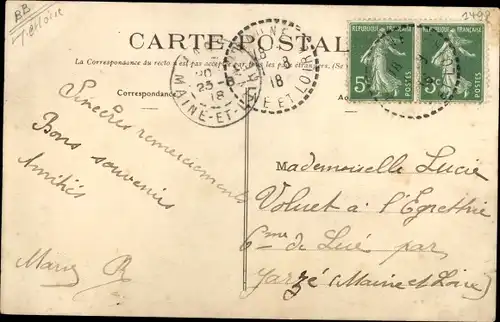 BB
1498
CARTE POSTALE
La Correspondance au recto n'est pas acceptée par tous les pays étrangers. (Se
Correspondance
MAINE-ET-L
23-8
18
8
18
ET LOIR
RÉPUBLIQUE FRANÇAISE
5c POSTES
5c POSTES
Sincères remerciements
Bons souvenirs
Amitiés
Marie R
Mademoiselle Lucie
Voluet à l'Egrettrie
Cne de Lué par
Jarzé (Maine et Loire)